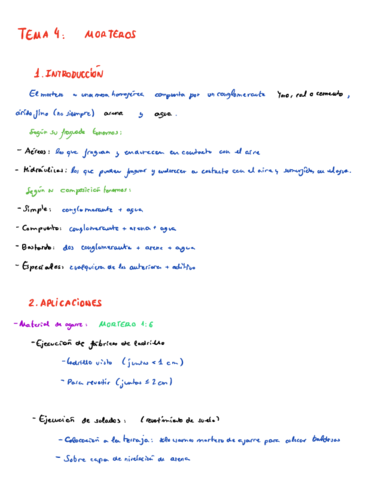 TEMA 4: MORTEROS
1. INTRODUCCIÓN
El mortero es una masa homogénea compuesta por un conglomerante yeso, cal o cemento,
árido fino (no siempre) arena y agua.
Según su fraguado tenemos:
- Aéreos: los que fraguan y endurecen en contacto con el aire
- Hidráulicos: los que pueden fraguar y endurecer en contacto con el aire y sumergidos en el agua.
Según su composición tenemos:
- Simple: conglomerante + agua
- Compuesto: conglomerante + arena + agua
- Bastardo: dos conglomerante + arena + agua
- Especiales: cualquiera de los anteriores + aditivo
2. APLICACIONES
- Material de agarre: MORTERO 1:6
- Ejecución de fábricas de ladrillo
- Ladrillo visto (juntas ≤ 1 cm)
- Para revestir (juntas ≤ 2 cm)
- Ejecución de solados: (revestimiento de suelo)
- Colocación a la terraja: solo usamos mortero de agarre para colocar baldosas
- Sobre capa de nivelación de arena